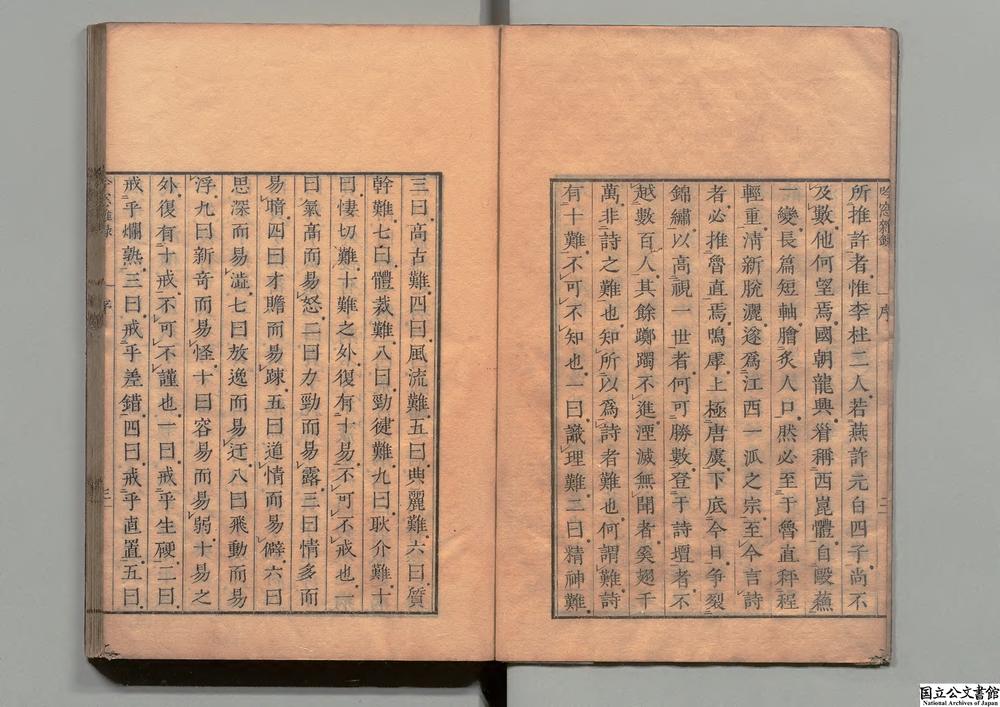 所推許者惟李杜二人若燕許元白四子尚不
及數他何望焉國朝龍興首稱西崑體自毆蘓
一變長篇短軸膾炙人口然必至于魯直秤程
輕重淸新脫灑遂爲江西一派之宗至今言詩
者必推魯直焉嗚虖上極唐虞下底今日爭裂
錦繡以高視一世者何可勝數登于詩壇者不
越數百人其餘躑躅不進湮滅無聞者奚翅千
萬非詩之難也知所以爲詩者難也何謂難詩
有十難不可不知也一曰識理難二曰精神難
吟窓雜錄 序 二
三曰高古難四曰風流難五曰典麗難六曰質
幹難七曰體裁難八曰勁健難九曰耿介難十
曰悽切難十難之外復有十易不可不戒也一
曰氣高而易怒二曰力勁而易露三曰情多而
易暗四曰才贍而易疎五曰道情而易僻六曰
思深而易澁七曰放逸而易迂八曰飛動而易
浮九曰新奇而易怪十曰容易而易弱十易之
外復有十戒不可不謹也一曰戒乎生硬二曰
戒乎爛熟三曰戒乎差錯四曰戒乎直置五曰
序 三
国立公文書館
National Archives of Japan